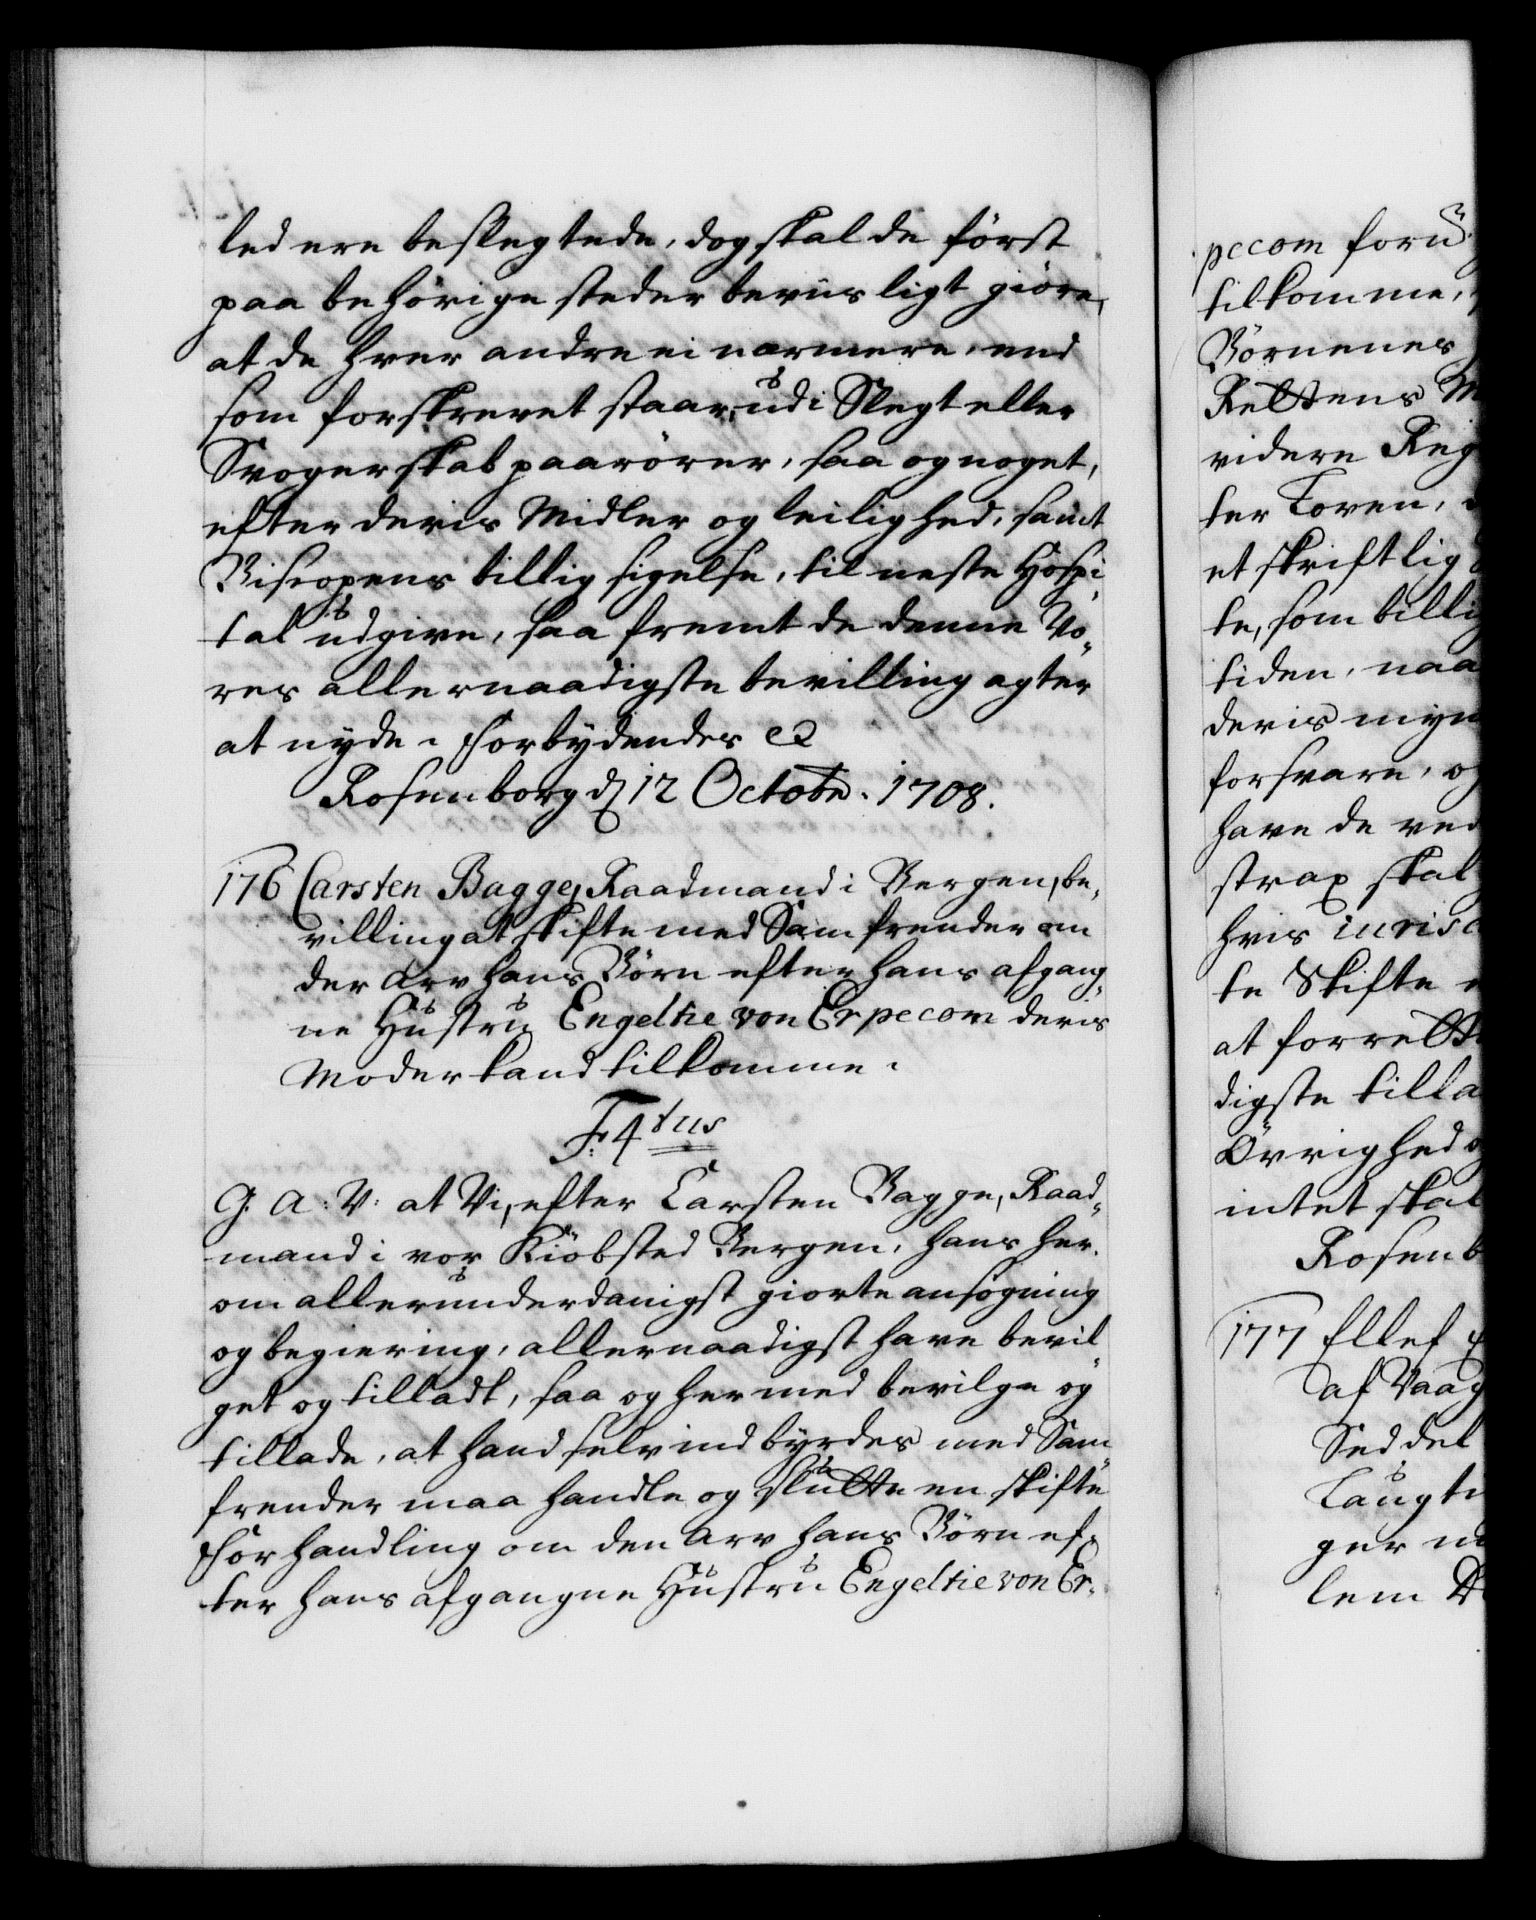 led ere beslegtede, dog skal de först
paa behörige steder beviisligt giöre,
at de hver andre ei nærmere, end
som forskrevet staar, udi Slegt eller
Svogerskab paarörer, saa og noget,
efter deris Midler og leilighed, samt
Biscopens billig sigelse, til neste Hospi-
tal udgive, saa fremt de denne Vo-
res allernaadigste bevilling agter
at nyde. Forbydendes &
Rosenborg d 12 Octobr. 1708.
176 Carsten Bagge, Raadmand i Bergen, be-
villing at skifte med Samfrender om
den arv hans Börn efter hans afgang-
ne Hustru Engeltie von Erpecom deris
Moder kand tilkomme.
F: 4tus
G. A: V: at Vi, efter Carsten Bagge, Raad-
mand i vor Kiöbsted Bergen, hans her-
om allerunderdanigst giorte ansögning
og begiering, allernaadigst have bevil-
get og tilladt, saa og hermed bevilge og
tillade, at hand selv indbyrdes med Sam-
frender maa handle og slutte en skifte
Forhandling om den arv hans Börn ef-
ter hans afgangne Hustru Engeltie von Er-
pecom foru
tilkomme,
Börnenes
Rettens M
videre Reg
ter Loven,
et skriftlig
te, som billig
tiden, naa
deris myn
forsvare, og
have de ved
strax skal
hvis iurisd
te Skifte
at forrette
digste tilla
Övrighed o
intet skal
Rosenb
177 Ellef
af Vaag
Seddel
Laugti
ger
lem